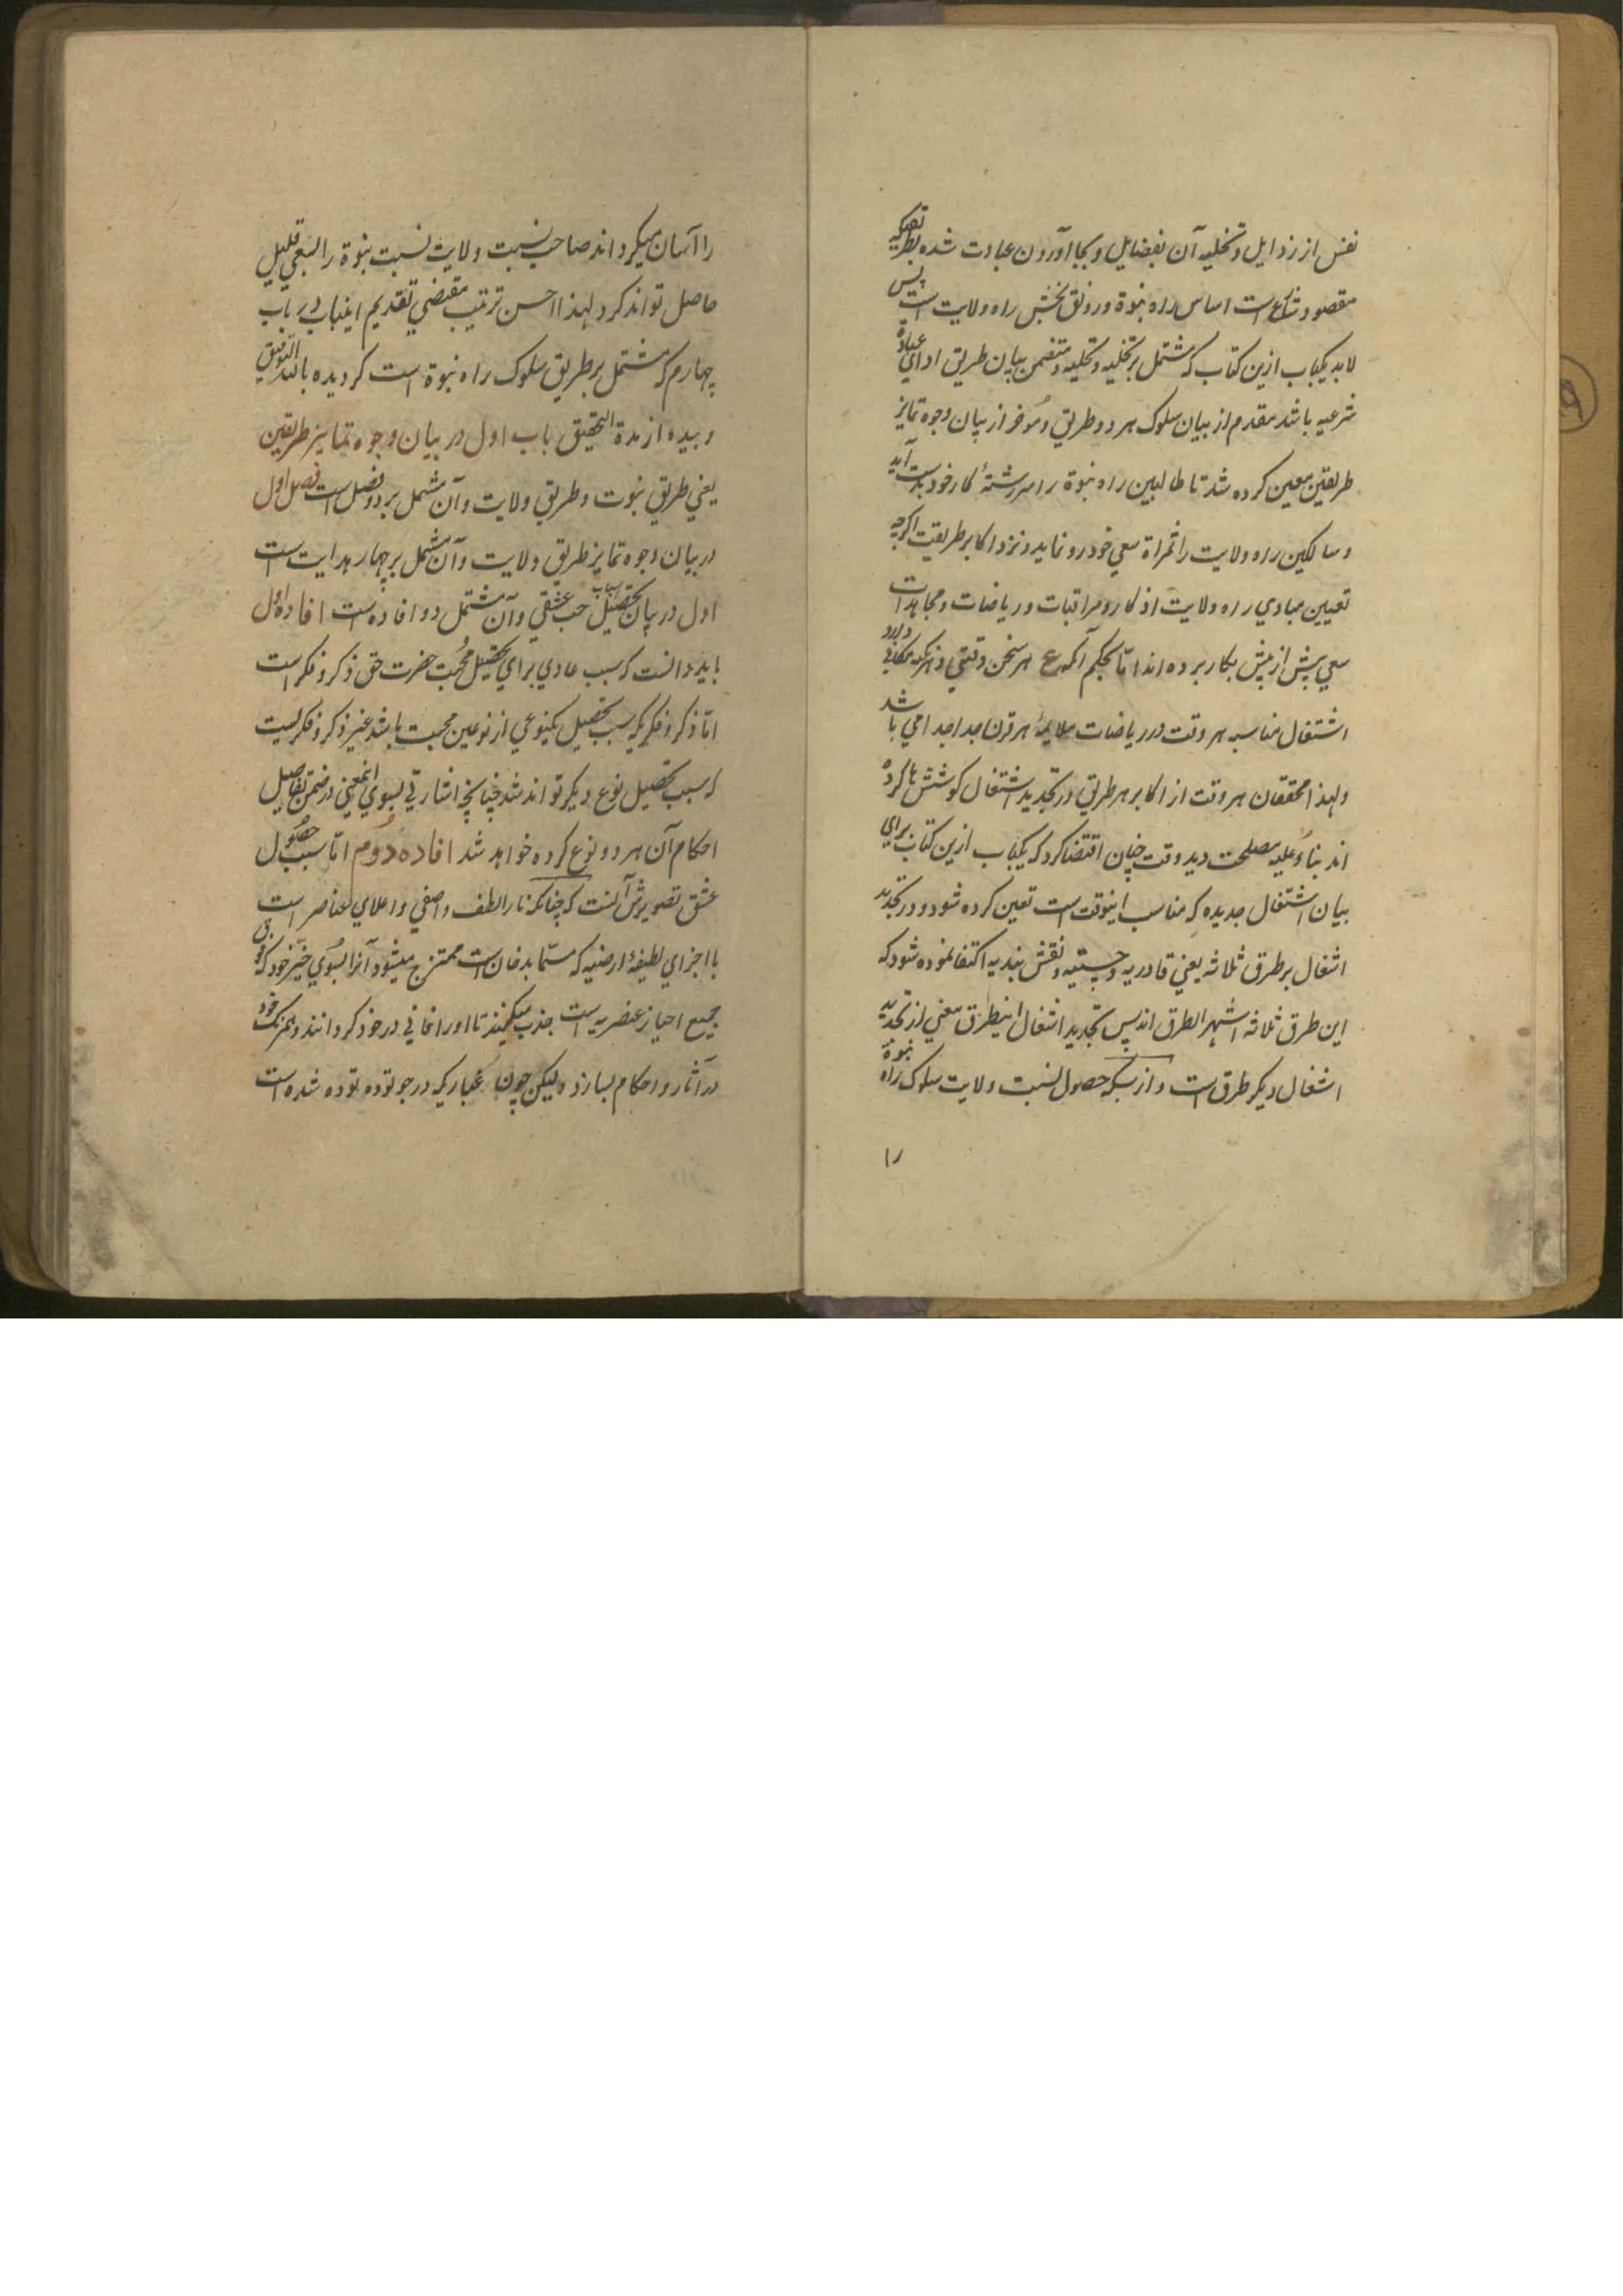 نفس از رذایل و تحلیه آن بفضایل و بجا آوردن عبادت شده بطریقیکه
مقصود شارع است اساس راه نبوة و رونق بخش راه ولایت است پس
لابد یکباب ازین کتاب که مشتمل بر تخلیه و تحلیه و متضمن بیان طریق ادای عبادة
شرعیه باشد مقدم از بیان سلوک هر دو طریق و مُوخر از بیان وجوه تمایز
طریقین معین کرده شد تا طالبین راه نبوة را سررشتهٔ کار خود بدست آید
و سالکین راه ولایت را ثمراة سعی خود رو نماید و نزد اکابر طریقت اگرچه
تعیین مبادي راه ولایت از اذکار و مراقبات و ریاضات و مجاهدات
سعي بیش از پیش بکار برده اند امّا بحکم آنکه ع هر سخن وقتی و هر نکته مکانی دارد
اشتغال مناسبه هر وقت و ریاضات ملایمهٔ هر قرن جدا جدا می باشد
و لهذا محققان هر وقت از اکابر هر طریق در تجدید اشتغال کوششها کرده
اند بناءً علیه مصلحت دید وقت چنان اقتضا کرد که یکباب ازین کتاب برای
بیان اشتغال جدیده که مناسب اینوقت است تعین کرده شود و در تجدید
اشغال بر طرق ثلاثه یعنی قادریه و چشتیه و نقشبندیه اکتفا نموده شود که
این طرق ثلاثه اشهر الطرق اند پس تجدید اشغال اینطرق مغنی از تجدید
اشغال دیگر طرق است و از بسکه حصول نسبت ولایت سلوک راه نبوة
را
را آسان میگرداند صاحب نسبت ولایت نسبت نبوة را بسعی قلیل
حاصل تواند کرد لهذا احسن ترتیب مقتضي تقدیم اینباب بر باب
چهارم که مشتمل بر طریق سلوک راه نبوة است گردیده بالله التوفیق
و بیده ازمة التحقیق باب اول در بیان وجوه تمایز طریقین
یعني طریق نبوت و طریق ولایت و آن مشتمل بر دو فصل است فصل اول
در بیان وجوه تمایز طریق ولایت و آن مشتمل بر چهار هدایت است
اول در بیان اسباب تحصیل حب عشقي و آن مشتمل دو افاده است افادهٔ اول
باید دانست که سبب عادي براي تحصیل مُحبت حضرت حق ذکر و فکر است
امّا ذکر و فکریکه سبب تحصیل یکنوعي از نوعین محبت باشد غیر ذکر و فکریست
که سبب تحصیل نوع دیگر تواند شد چنانچه اشارتي بسوي اینمعني در ضمن تفاصیل
احکام آن هر دو نوع کرده خواهد شد افاده دُوُم امّا سبب حصُول
عشق تصویرش آنست که چنانکه نار الطف و اصفي و اعلاي عناصر است
با اجزاي لطیفهٔ ارضیه که مسمّا بدخان است ممتزج میشود آنرا بسُوي حیّز خود که فوق
جمیع احیاز عنصریه است جذب میکند تا او را فانی در خود گرداند و همرنگ خود
در آثار و احکام بسازد و لیکن چون غباریکه در جو توده توده شده است